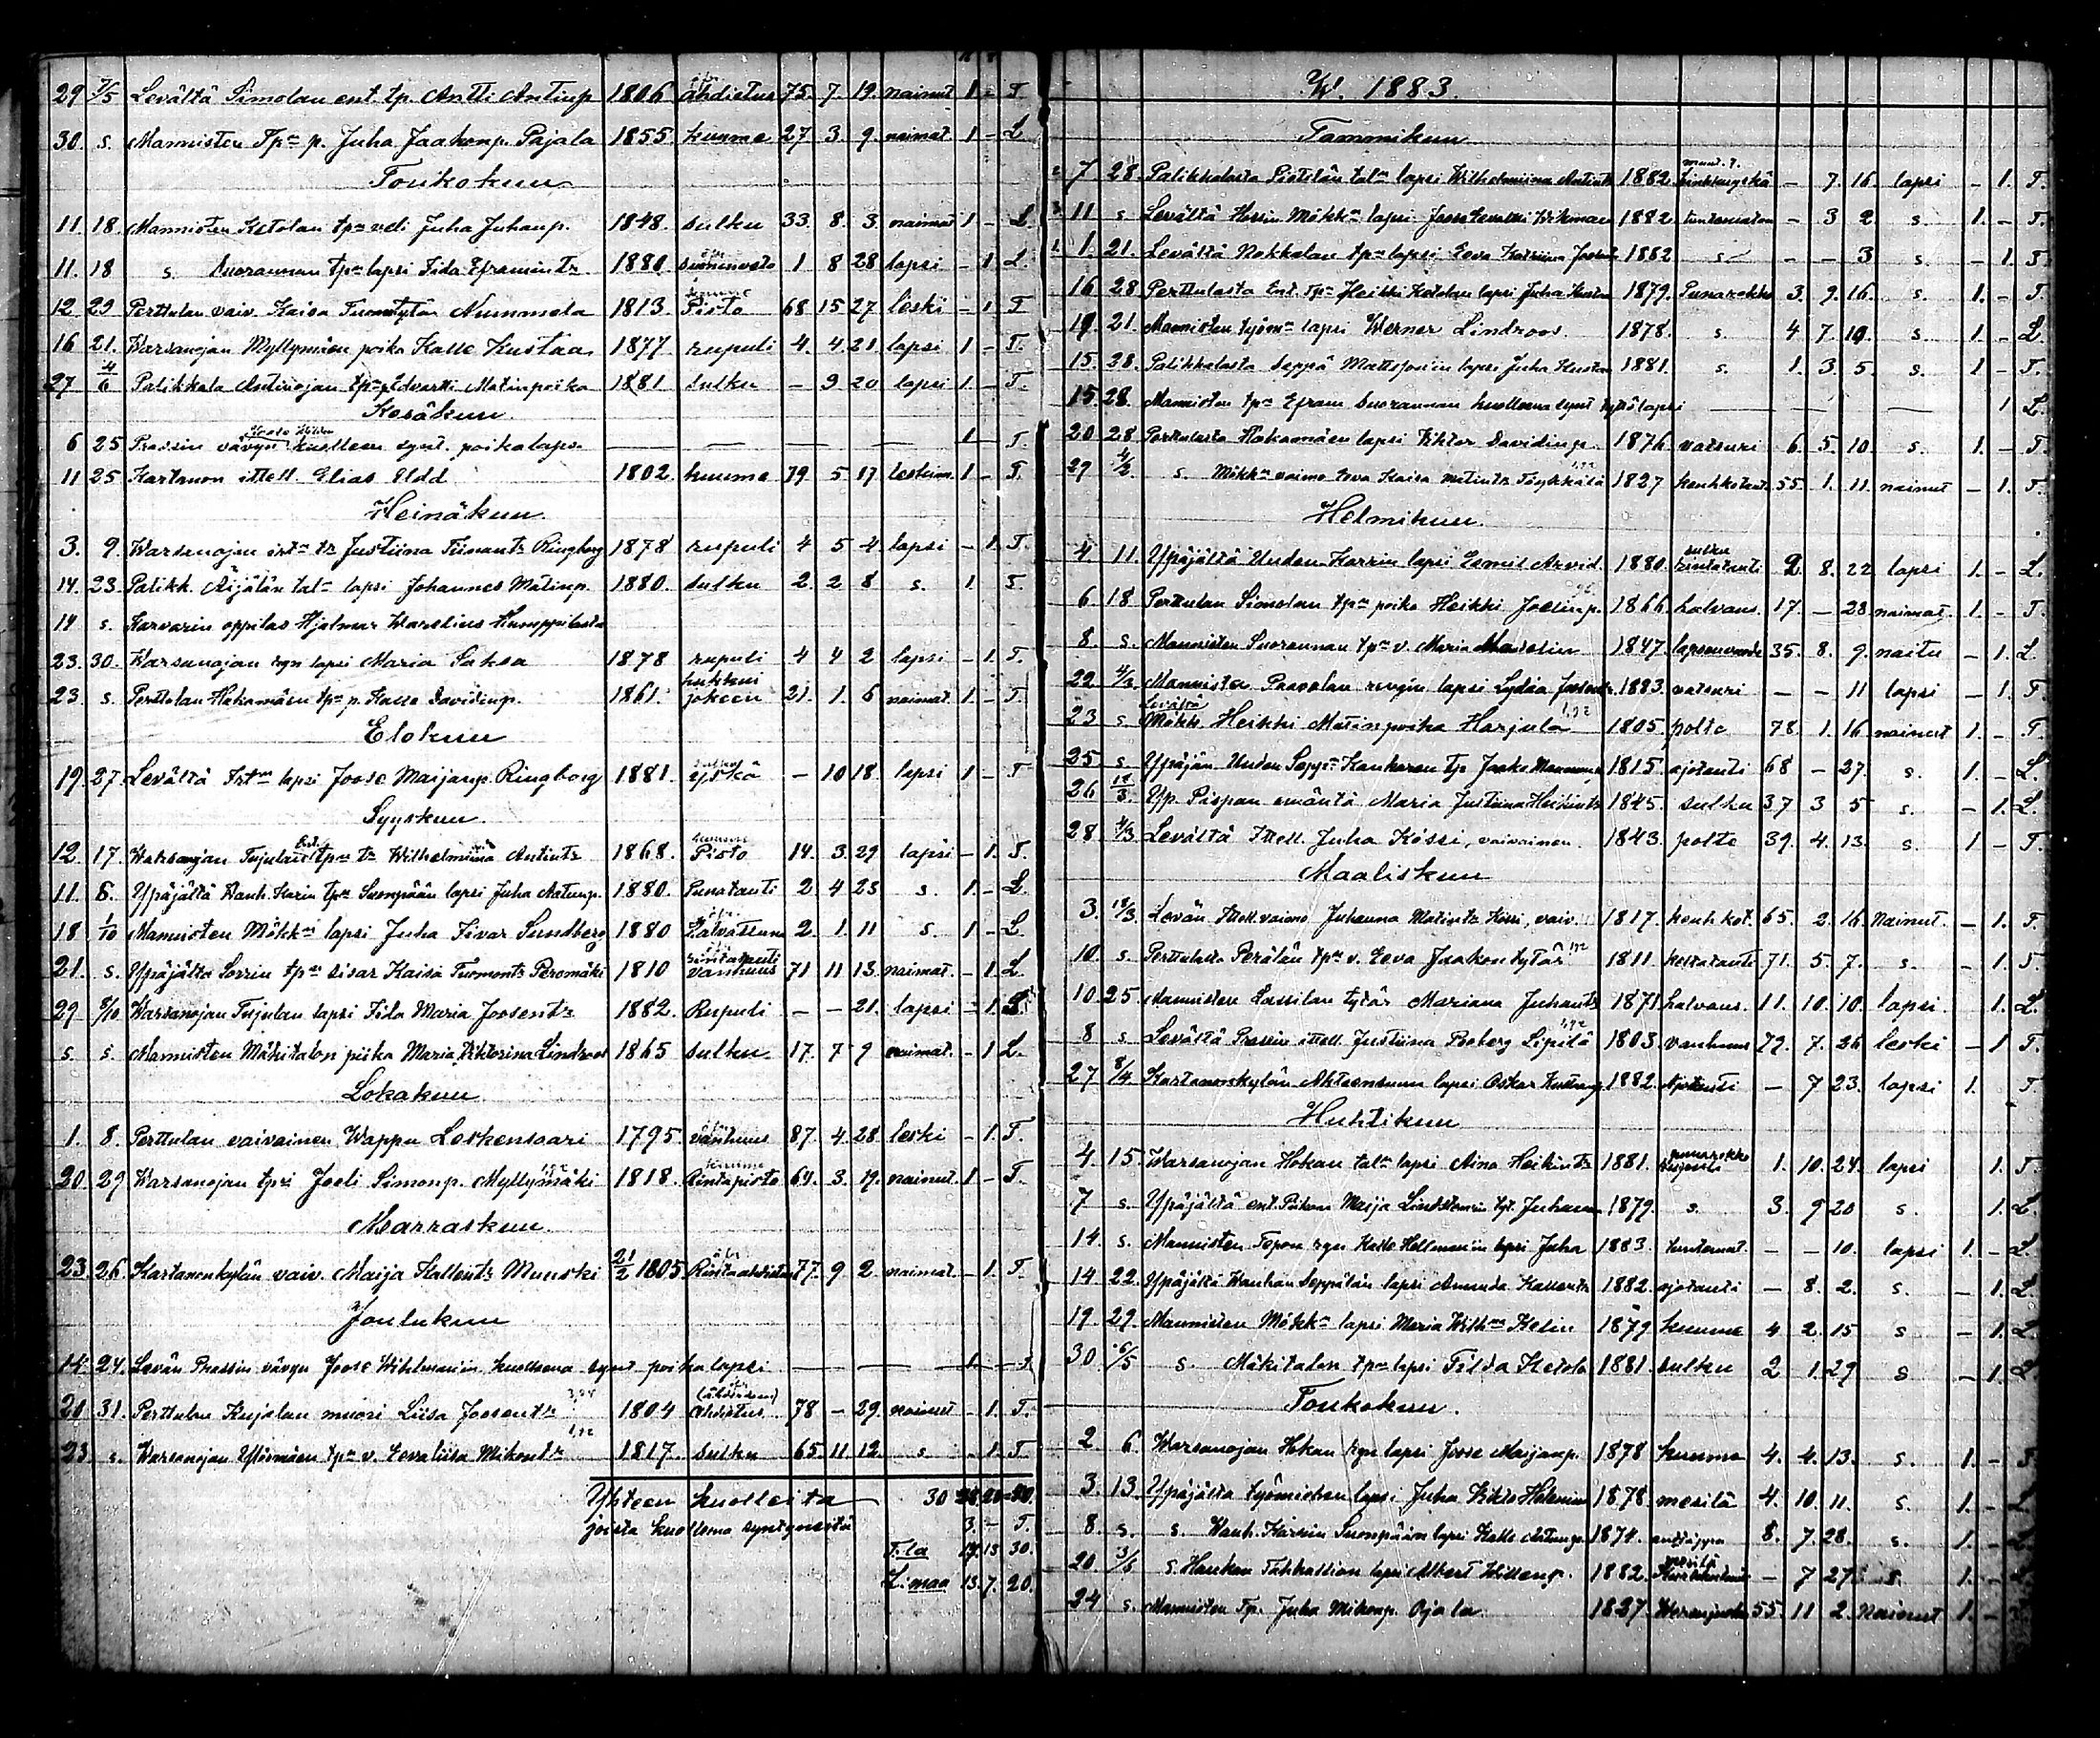 29 7/5 Levältä Simolan ent. tp. Antti Antinp. 1806 ahdistus 75. 7. 19. nainut 1 - T.
30. s. Mannisten Tp:n p. Juha Jaakonp. Pajala 1855. kuume 27 3. 9. naimat. 1 - L
Toukokuu
11 18. Mannisten Ketolan tp:n veli Juha Juhanp. 1848. sulku 33. 8. 3. naimat 1 - L.
11. 18 s. Suorannan tp:n lapsi Fida Efraimintr. 1880 1 8 28 lapsi - 1 L.
12 29 Perttulan vaiv. Kaisa Tuomtytär Nummela 1813 Pisto 68 15 27 leski - 1 T
16 21. Warsanojan Myllymäen poika Kalle Kustaa 1877 rupuli 4. 4 21 lapsi 1 - T.
27 4/6 Palikkala Antinojan tp:n p. Edvartti Matinpoika 1881 sulku - 9 20 lapsi 1. - T.
Kesäkuu
6 25 Prassin vävyn kuolleen synt. poikalapsi — — — — — 1 - T.
11 25 Kartanon ittell. Elias Eldd 1802 kuume 79 5 17 leskim. 1 - T.
Heinäkuu
3. 9. Warsanojan irt:n tr Justiina Fiinantr. Ringberg 1878 rupuli 4 5 4. lapsi - 1. T.
14. 23. Palikk. Äijälän tal:n lapsi Johannes Matinp. 1880. sulku 2. 2 8 s. 1 T.
14 s. Karvarin oppilas Hjalmar Warelius Humppilasta
23. 30. Warsanojan lapsi Maria Saksa 1878 rupuli 4 4 2 lapsi - 1. T.
23 s. Perttulan Hakamäen tp:n p. Kalle Davidinp. 1861. hukkui jokeen 21. 1. 6 naimat. 1. - T.
Elokuu
19. 27. Levältä Irt:n lapsi Joose Maijanp. Ringborg 1881. - 10 18. lapsi 1 - T
Syyskuu
12. 17. Warsanojan Tujulan tp:n tr Wilhelmiina Antintr. 1868. Pisto 14. 3. 29 lapsi - 1. T.
11. 6. Ypäjältä Wanh. Karin tp:n Suonpään lapsi Juha Aatunp. 1880. Punatauti 2. 4 23 s. 1. - L.
18 1/10 Mannisten Mökk:n lapsi Juha Fivar Sundberg 1880 2. 1. 11 s. 1 - L.
21. s. Ypäjältä Sorrin tp:n sisar Kaisa Tuomontr. Peromäki 1810 vanhuus 71 11 13. naimat. - 1. L.
29 8/10 Warsanojan Tujulan lapsi Fida Maria Joosentr. 1882. Rupuli - - 21. lapsi - 1. L.
s. s. Mannisten Mäkitalon piika Maria Wiktorina Lindroos 1865 sulku 17. 7 9 naimat. - 1 L.
Lokakuu
1. 8. Perttulan vaivainen Wappu Leskensaari 1795. vanhuus 87. 4. 28. leski - 1. T.
20. 29 Warsanojan tp:n Joeli Simonp. Myllymäki 1818. Rintapisto 64. 3. 19. nainut 1 - T.
Marraskuu
23. 26. Kartanonkylän vaiv. Maija Kallentr. Munski 21/2 1805 Rintaahdistus 77. 9 2. naimat. - 1. T.
Joulukuu
14. 24. Levän Prassin vävyn Joose Wikmanin kuolleena synt poika lapsi — — — — 1 - T.
21 31. Perttulan Kujalan muori Liisa Joosentr. 1804 ahdistus 78 - 29. nainut - 1. T.
23. s. Warsanojan Ylösmäen tp:n v. Eevaliisa Mikontr. 1817. sulku 65. 11. 12. s - 1. T
Yhteen kuolleita 30
joista kuolleena syntyneitä 3. - T.
T:la 17. 13 30.
L:maa 13. 7. 20.
W. 1883.
Tammikuu
7 28. Palikkalasta Pietilän tal:n lapsi Wilhelmiina Antintr. 1882. - 7. 16 lapsi - 1. T.
11 s. Levältä Mökk:n lapsi Joose Wikman 1882. tuntematon - 3 2 s. 1. - T.
1. 21. Levältä Nokkalan tp:n lapsi Eeva Katriina 1882 s. - - 3 s. - 1. T
16 28 Perttulasta Ent. tp:n Heikki Ketolan lapsi Juha Kustaa 1879. Punarokko 3. 9. 16. s. 1. - T.
19. 21. Mannisten työm:n lapsi Werner Lindroos. 1878. s. 4 7. 10. s 1. - L.
15. 28. Palikkalasta Seppä Mattssonin lapsi Juha Kustaa 1881. s. 1. 3. 5. s. 1 - T.
15. 28. Mannisten tp:n Efraim Suorannan kuolleena synt tyttölapsi — — — 1 L.
20 28 Perttulasta Hakamäen lapsi Wiktor Davidinp. 1876. vatsuri 6. 5. 10. s. 1. - T.
29 4/2 s. Mökk:n vaimo Eeva Kaisa Matintr. Töykkälä 1827 keuhkotauti 55. 1. 11. nainut - 1. T.
Helmikuu
4. 11. Ypäjältä Uuden-Karrin lapsi Eemil Arvid. 1880. sulku rintatauti 2. 8. 22 lapsi 1. - L.
6. 18 Perttulan Simolan tp:n poika Heikki Joelinp. 1866. halvaus. 17. - 28 naimat. 1. - T.
8. s. Mannisten Suorannan tp:n v. Maria Madelin 1847. lapsenvuode 35. 8. 9. naitu - 1. L.
22 4/3 Mannisten Paavolan rengin lapsi Lydia Joosentr. 1883. vatsuri - - 11 lapsi - 1. T
23 s Levältä Mökk. Heikki Matinpoika Harjula 1805. polte 78. 1. 16 nainut 1. - T.
25 s Ypäjän Uuden Sepp:n Kankaren tp. Jaako 1815. ajotauti 68 - 27. s. 1. - L.
26 18/3. Yp. Piispan emäntä Maria Justiina Heikintr. 1845. sulku 37 3 5 s. - 1. L.
28 4/3 Levältä Ittell. Juha Kössi, vaivainen. 1843. polte 39. 4. 13. s. 1 - T.
Maaliskuu
3. 18/3. Levän Ittell. vaimo Juhanna Matintr. Kössi, vaiv. 1817. keuh. kot. 65. 2. 16. Nainut. - 1. T.
10. s. Perttulasta Perälän tp:n v. Eeva Jaakontytär 1811. 71. 5. 7. s. - 1. T.
10. 25. Mannisten Lassilan tytär Mariana Juhantr. 1871. halvaus. 11. 10. 10. lapsi. 1. L.
8 s. Levältä Prassin ittell. Justiina Roberg Lipilä 1803. vanhuus 79. 7. 26 leski - 1 T.
27 8/4 Kartanonkylän lapsi Oskar 1882. Ajotauti - 7 23. lapsi 1. T.
Huhtikuu
4. 15. Warsanojan Hokan tal:n lapsi Aina Heikintr. 1881. punarokko 1. 10. 24. lapsi 1. T.
7 s. Ypäjältä ent. Maija Lindstenin tyt. 1879. s. 3. 9 20 s. 1. L.
14. s. Mannisten Topon Kalle Hellmanin lapsi Juha 1883. tuntemat. - - 10. lapsi 1. - L.
14 22. Ypäjältä Wanhan Seppälän lapsi Amanda Kallentr. 1882. ajotauti - 8. 2. s. - 1. L.
19. 29. Mannisten Mökk:n lapsi Maria Wilh:na Helin 1879 kuume 4 2. 15 s - 1. L
30 6/5 s. Mäkitalon tp:n lapsi Fiida Ketola 1881. sulku 2 1. 29 s - 1. L
Toukokuu.
2 6. Warsanojan Hokan lapsi Joose Maijanp. 1878 kuume 4. 4. 13. s. 1. -
3. 13 Ypäjältä työmiehen lapsi Juha 1878. mesilä 4. 10. 11. s. 1. -
8. s. s. Wanh. Karrin Suonpään lapsi Kalle Aatunp. 1874. 8. 7. 28. s. 1. -
20. 3/6 s. Hankan lapsi Albert Willenp. 1882. - 7 27 s. 1. -
24 s. Mannisten Tp. Juha Mikonp. Ojala. 1827. 55. 11 2. Nainut 1. -